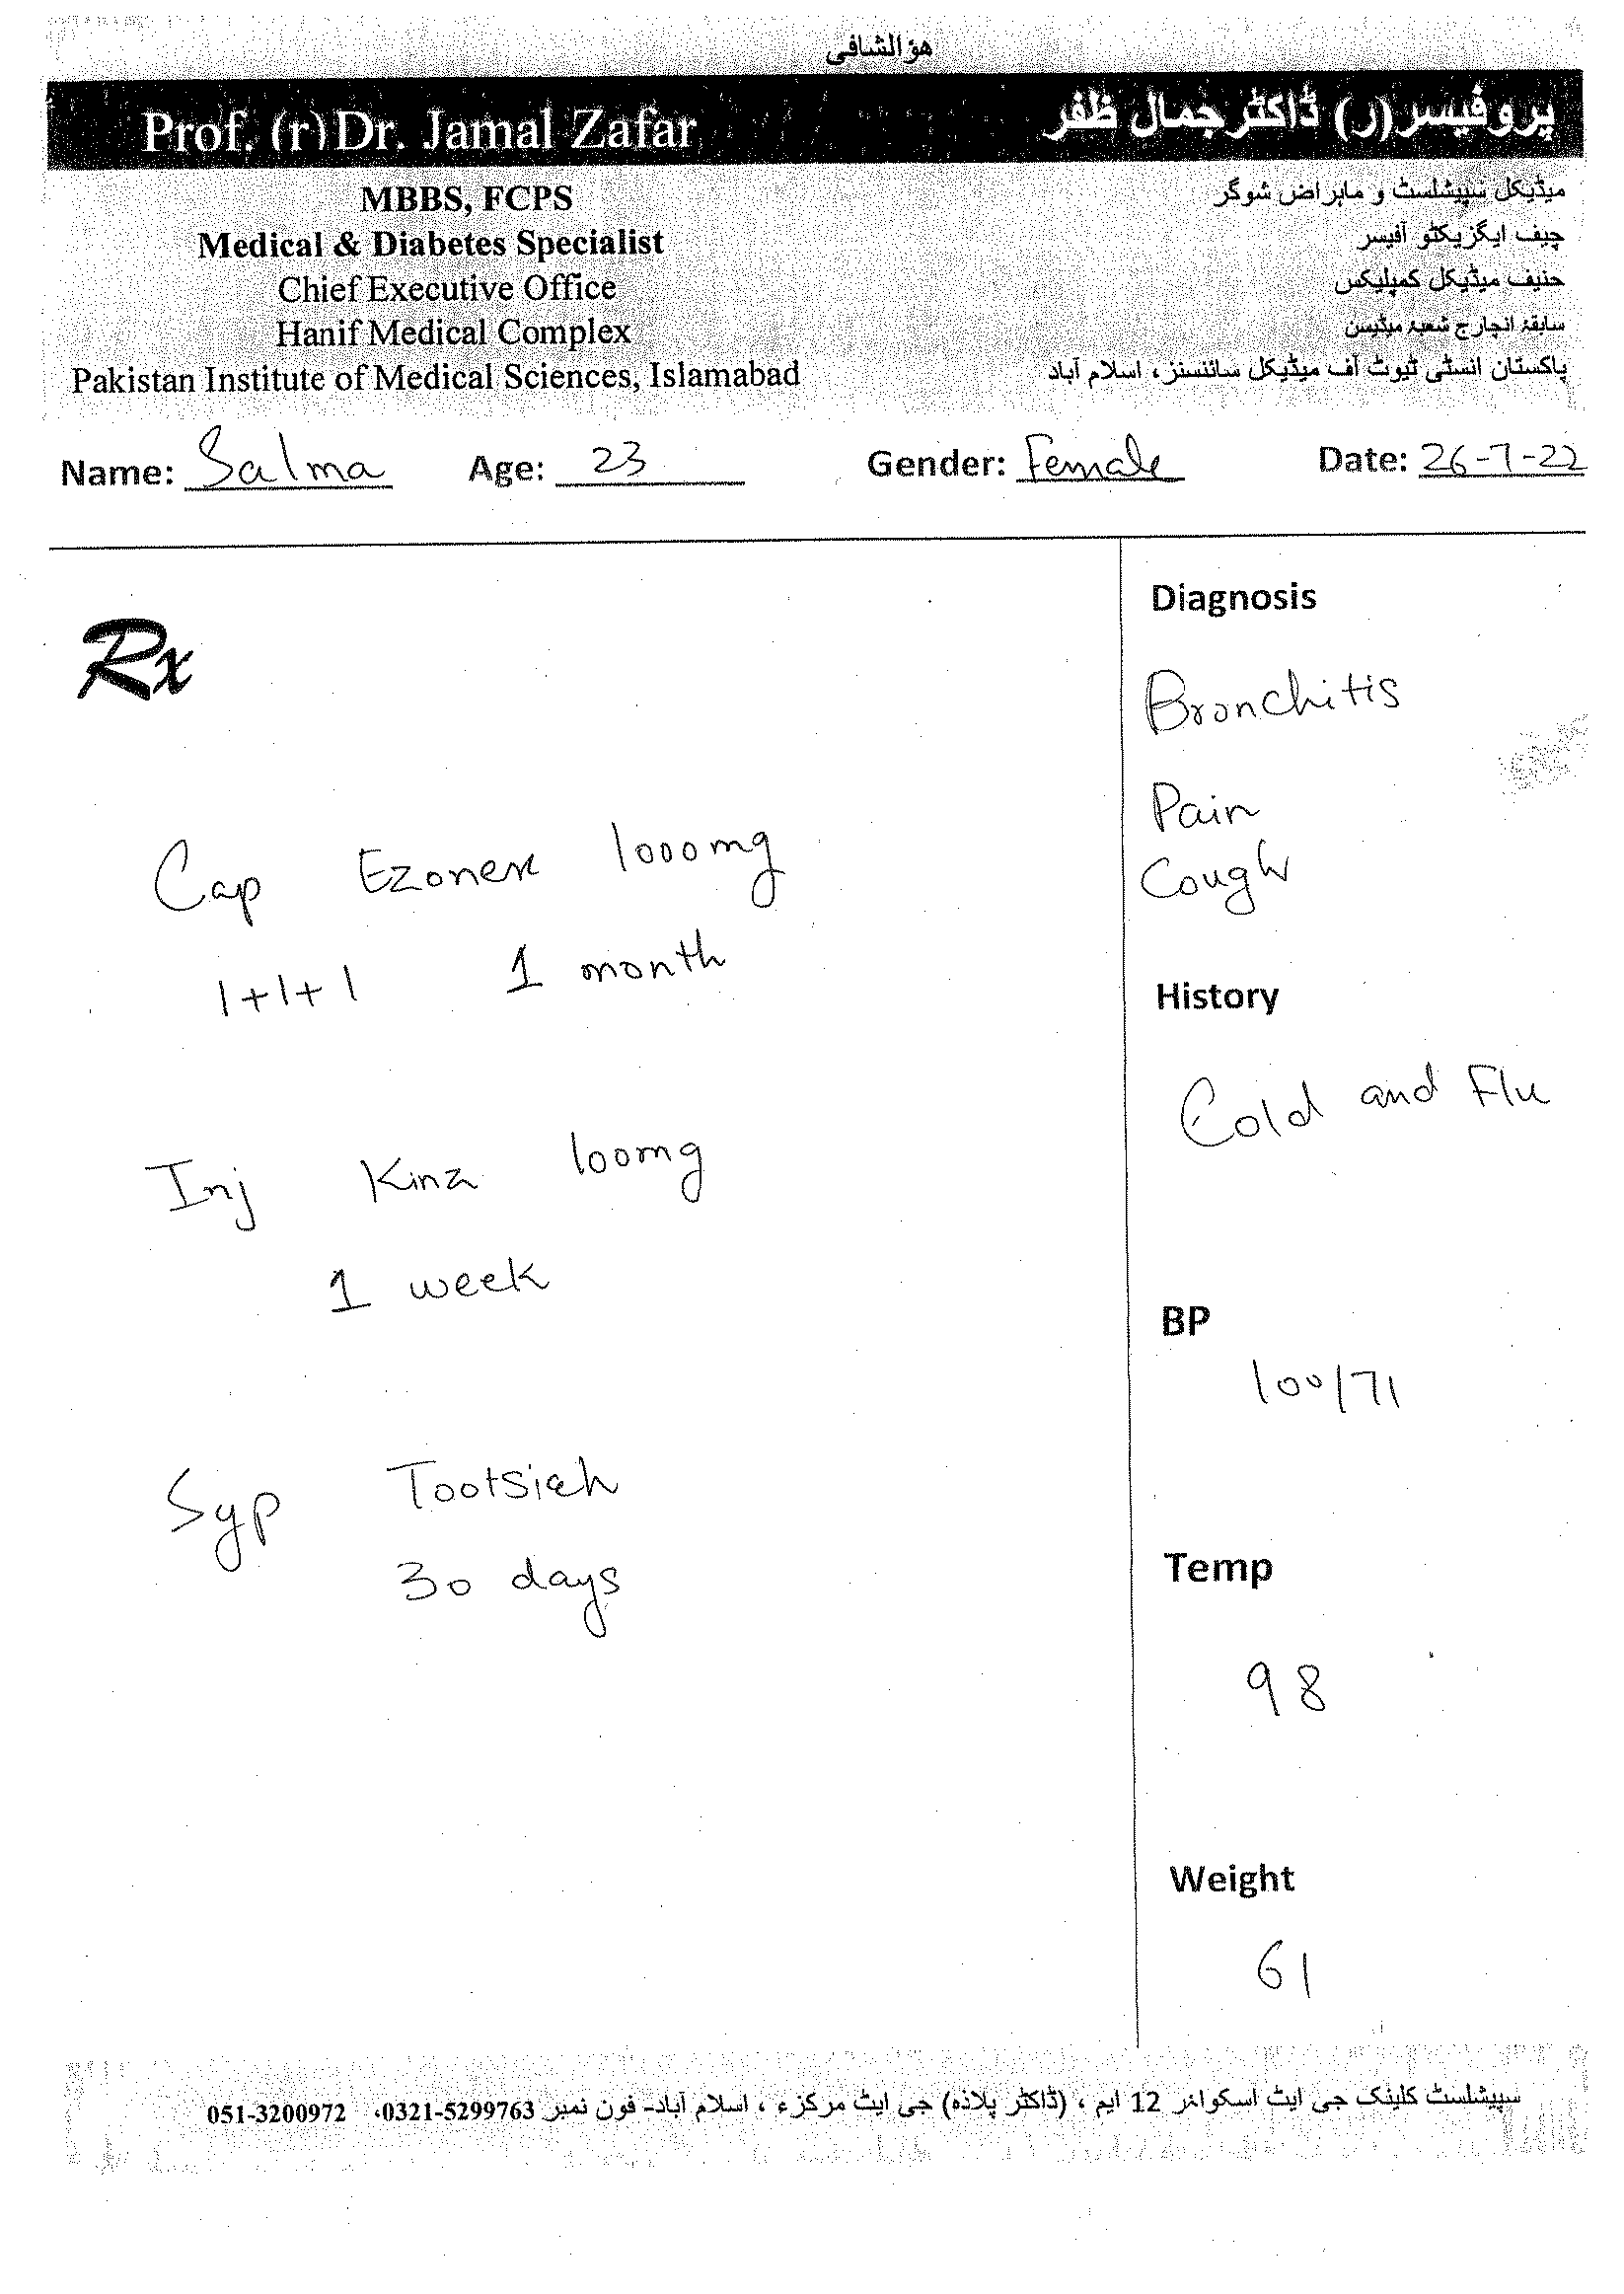 هوالشافی
Prof. (r) Dr. Jamal Zafar
پروفیسر(ر) ڈاکٹرجمال ظفر
MBBS, FCPS
میڈیکل سپیشلسٹ و ماہراض شوگر
Medical & Diabetes Specialist
چیف ایگزیکٹو آفیسر
Chief Executive Office
حنیف میڈیکل کمپلیکس
Hanif Medical Complex
سابقہ انچارج شعبہ میڈیسن
Pakistan Institute of Medical Sciences, Islamabad
پاکستان انسٹی ٹیوٹ آف میڈیکل سائنسنز، اسلام آباد
Name: Salma Age: 23 Gender: Female Date: 26-7-22
Rx
Cap Ezonex 1000mg
1+1+1 1 month
Inj Kinz 100mg
1 week
Syp
30 days
Diagnosis
Bronchitis
Pain
Cough
History
Cold and Flu
BP
100/71
Temp
98
Weight
61
سپیشلسٹ کلینک جی ایٹ اسکوائر 12 ایم ، (ڈاکٹر پلازہ) جی ایٹ مرکزء ، اسلام آباد- فون نمبر 0321-5299763، 051-3200972